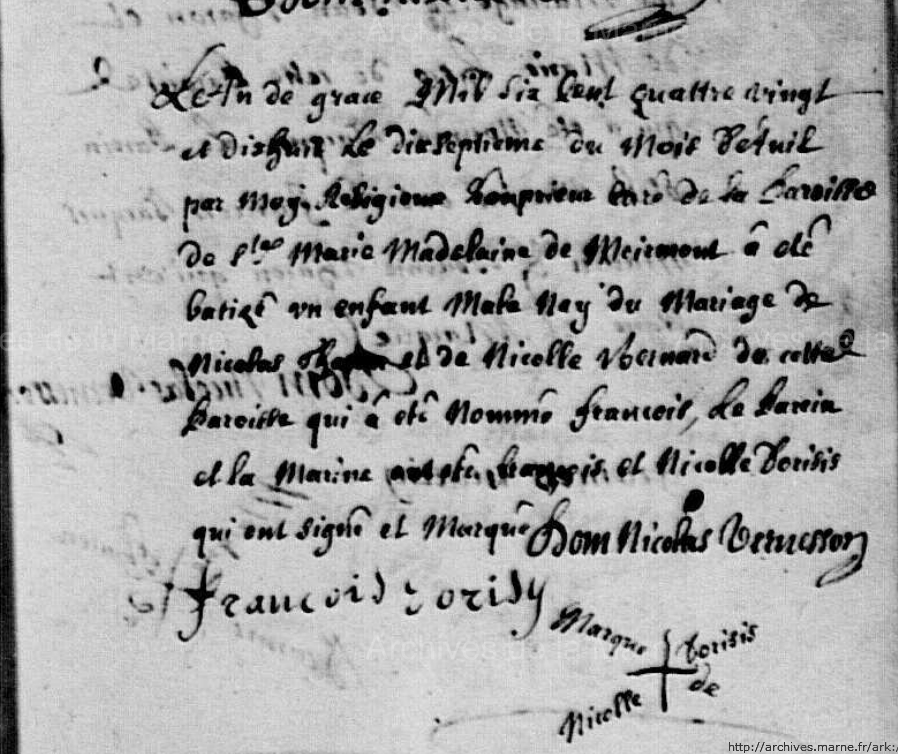 L'An de grace Mil Six Cent quattre vingt
et dishuit Le dixseptieme du Mois
par Moy Religieux prieur Curé de la Paroisse
de Marie Madelaine de a eté
batizé vn enfant Male Nay du Mariage de
Nicolas et de Nicolle Bernard de cette
Paroisse qui a eté Nommé francois, Le Parain
et la Marine ont eté françois et Nicolle Vorisis
qui ont signé et Marqué Dom Nicolas
Francois Vorisy
Marque Vorisis
Nicolle de
http://archives.marne.fr/ark:/